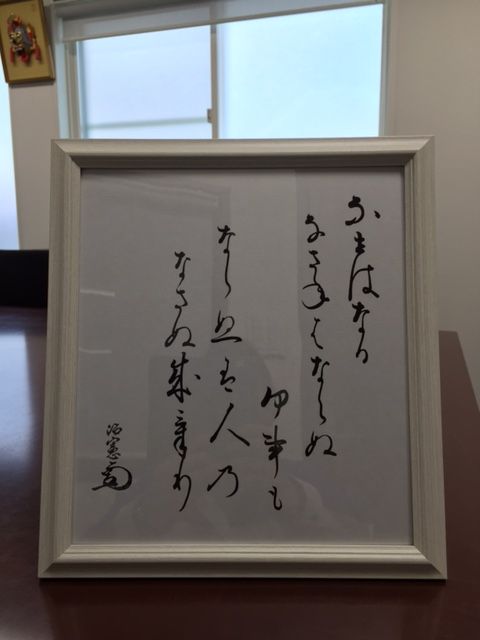 なせはなる
なさねはならぬ
何事も
ならぬは人乃
なさぬ成けり
治憲